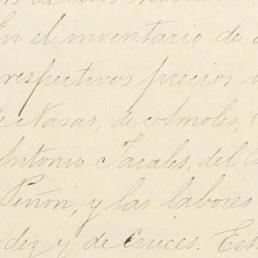 En el inventario de
respectivos precios
de Nazas, de Amoles,
Antonio Jacales, del
Piñon, y las labores
dez y de Cruces. Est